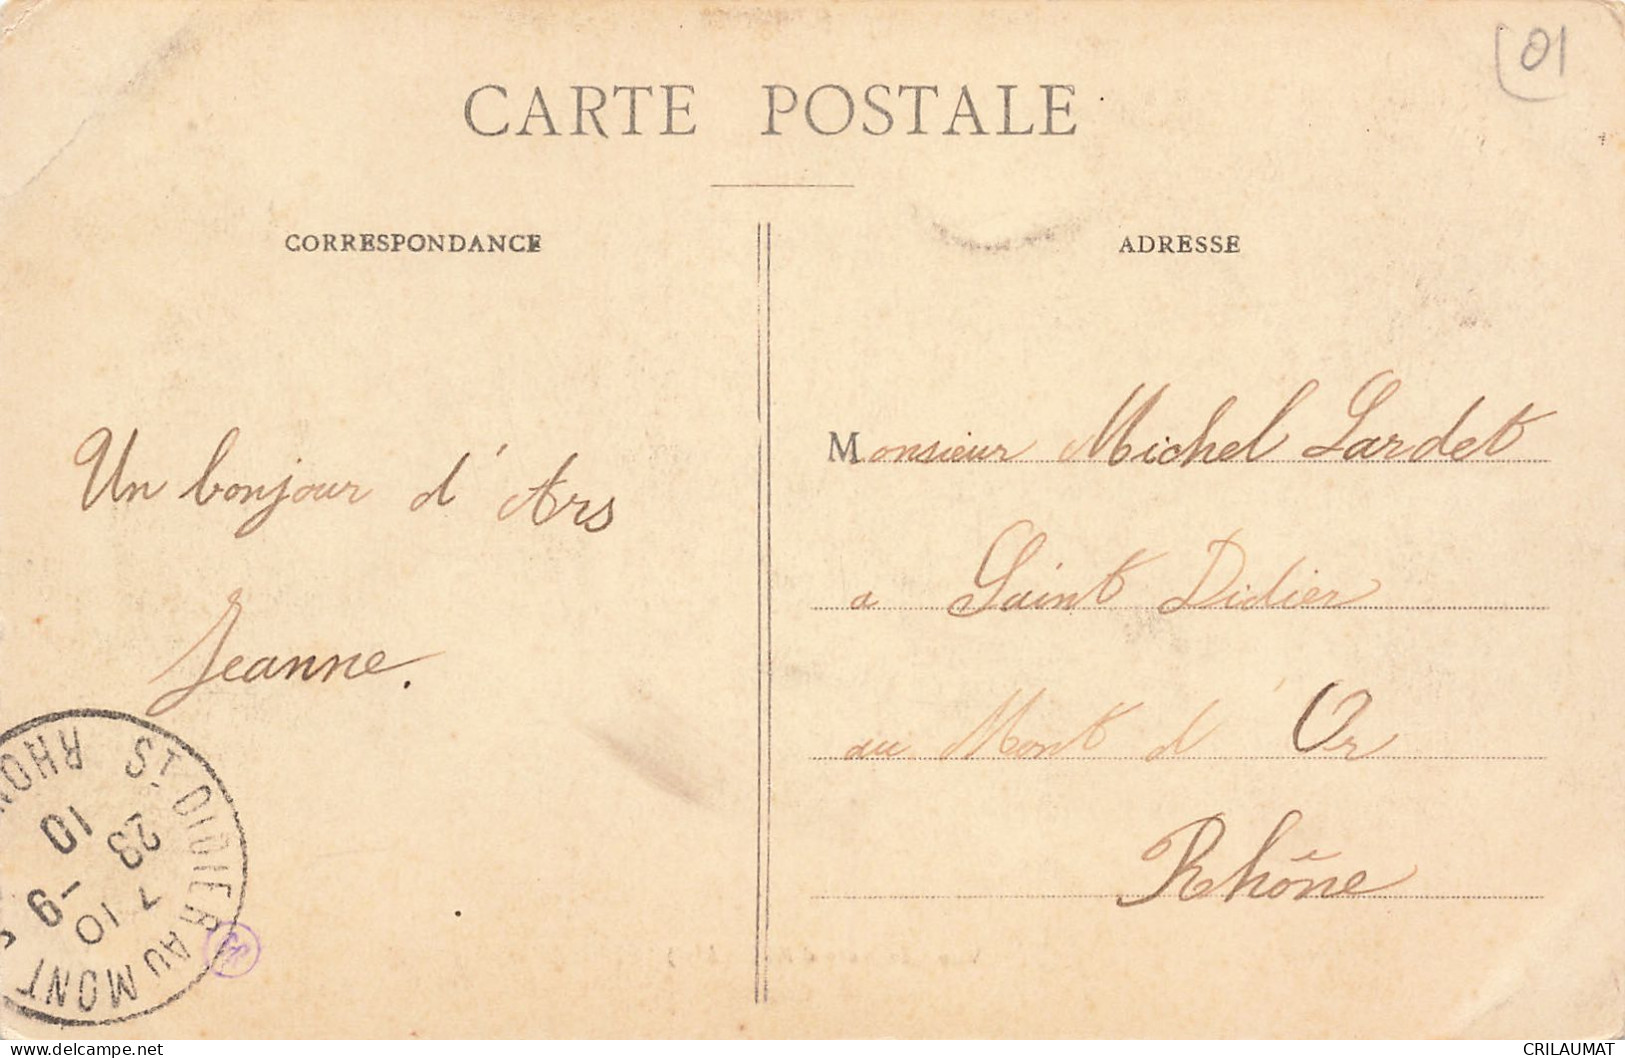 CARTE POSTALE
01
CORRESPONDANCE
ADRESSE
Un bonjour d'Ars
Jeanne.
Monsieur Michel Lardet
a Saint Didier
au Mont d'Or
Rhône
ST DIDIER AU MONT
RHON
7 10
23
-9
10
delcampe.net
CRILAUMAT